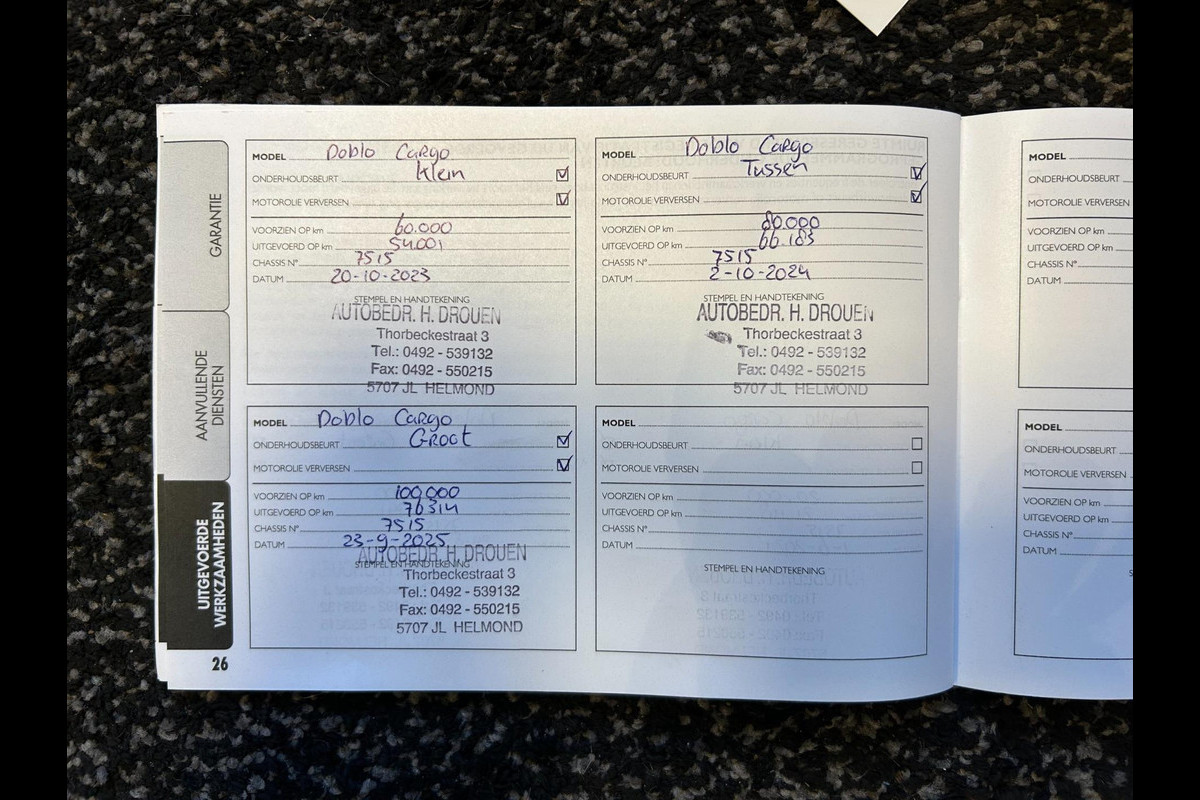 GARANTIE
AANVULLENDE
DIENSTEN
UITGEVOERDE
WERKZAAMHEDEN
26
MODEL Doblo Cargo
ONDERHOUDSBEURT Klein
MOTOROLIE VERVERSEN
VOORZIEN OP km 60.000
UITGEVOERD OP km 54.001
CHASSIS N° 7515
DATUM 20-10-2023
STEMPEL EN HANDTEKENING
AUTOBEDR. H. DROUEN
Thorbeckestraat 3
Tel.: 0492 - 539132
Fax: 0492 - 550215
5707 JL HELMOND
MODEL Doblo Cargo
ONDERHOUDSBEURT Tussen
MOTOROLIE VERVERSEN
VOORZIEN OP km 80.000
UITGEVOERD OP km 66.183
CHASSIS N° 7515
DATUM 2-10-2024
STEMPEL EN HANDTEKENING
AUTOBEDR. H. DROUEN
Thorbeckestraat 3
Tel.: 0492 - 539132
Fax: 0492 - 550215
5707 JL HELMOND
MODEL Doblo Cargo
ONDERHOUDSBEURT Groot
MOTOROLIE VERVERSEN
VOORZIEN OP km 100.000
UITGEVOERD OP km 76314
CHASSIS N° 7515
DATUM 23-9-2025
AUTOBEDR. H. DROUEN
STEMPEL EN HANDTEKENING
Thorbeckestraat 3
Tel.: 0492 - 539132
Fax: 0492 - 550215
5707 JL HELMOND
MODEL
ONDERHOUDSBEURT
MOTOROLIE VERVERSEN
VOORZIEN OP km
UITGEVOERD OP km
CHASSIS N°
DATUM
STEMPEL EN HANDTEKENING
MODEL
ONDERHOUDSBEURT
MOTOROLIE VERVERSEN
VOORZIEN OP km
UITGEVOERD OP km
CHASSIS N°
DATUM
MODEL
ONDERHOUDSBEURT
MOTOROLIE VERVERSEN
VOORZIEN OP km
UITGEVOERD OP km
CHASSIS N°
DATUM